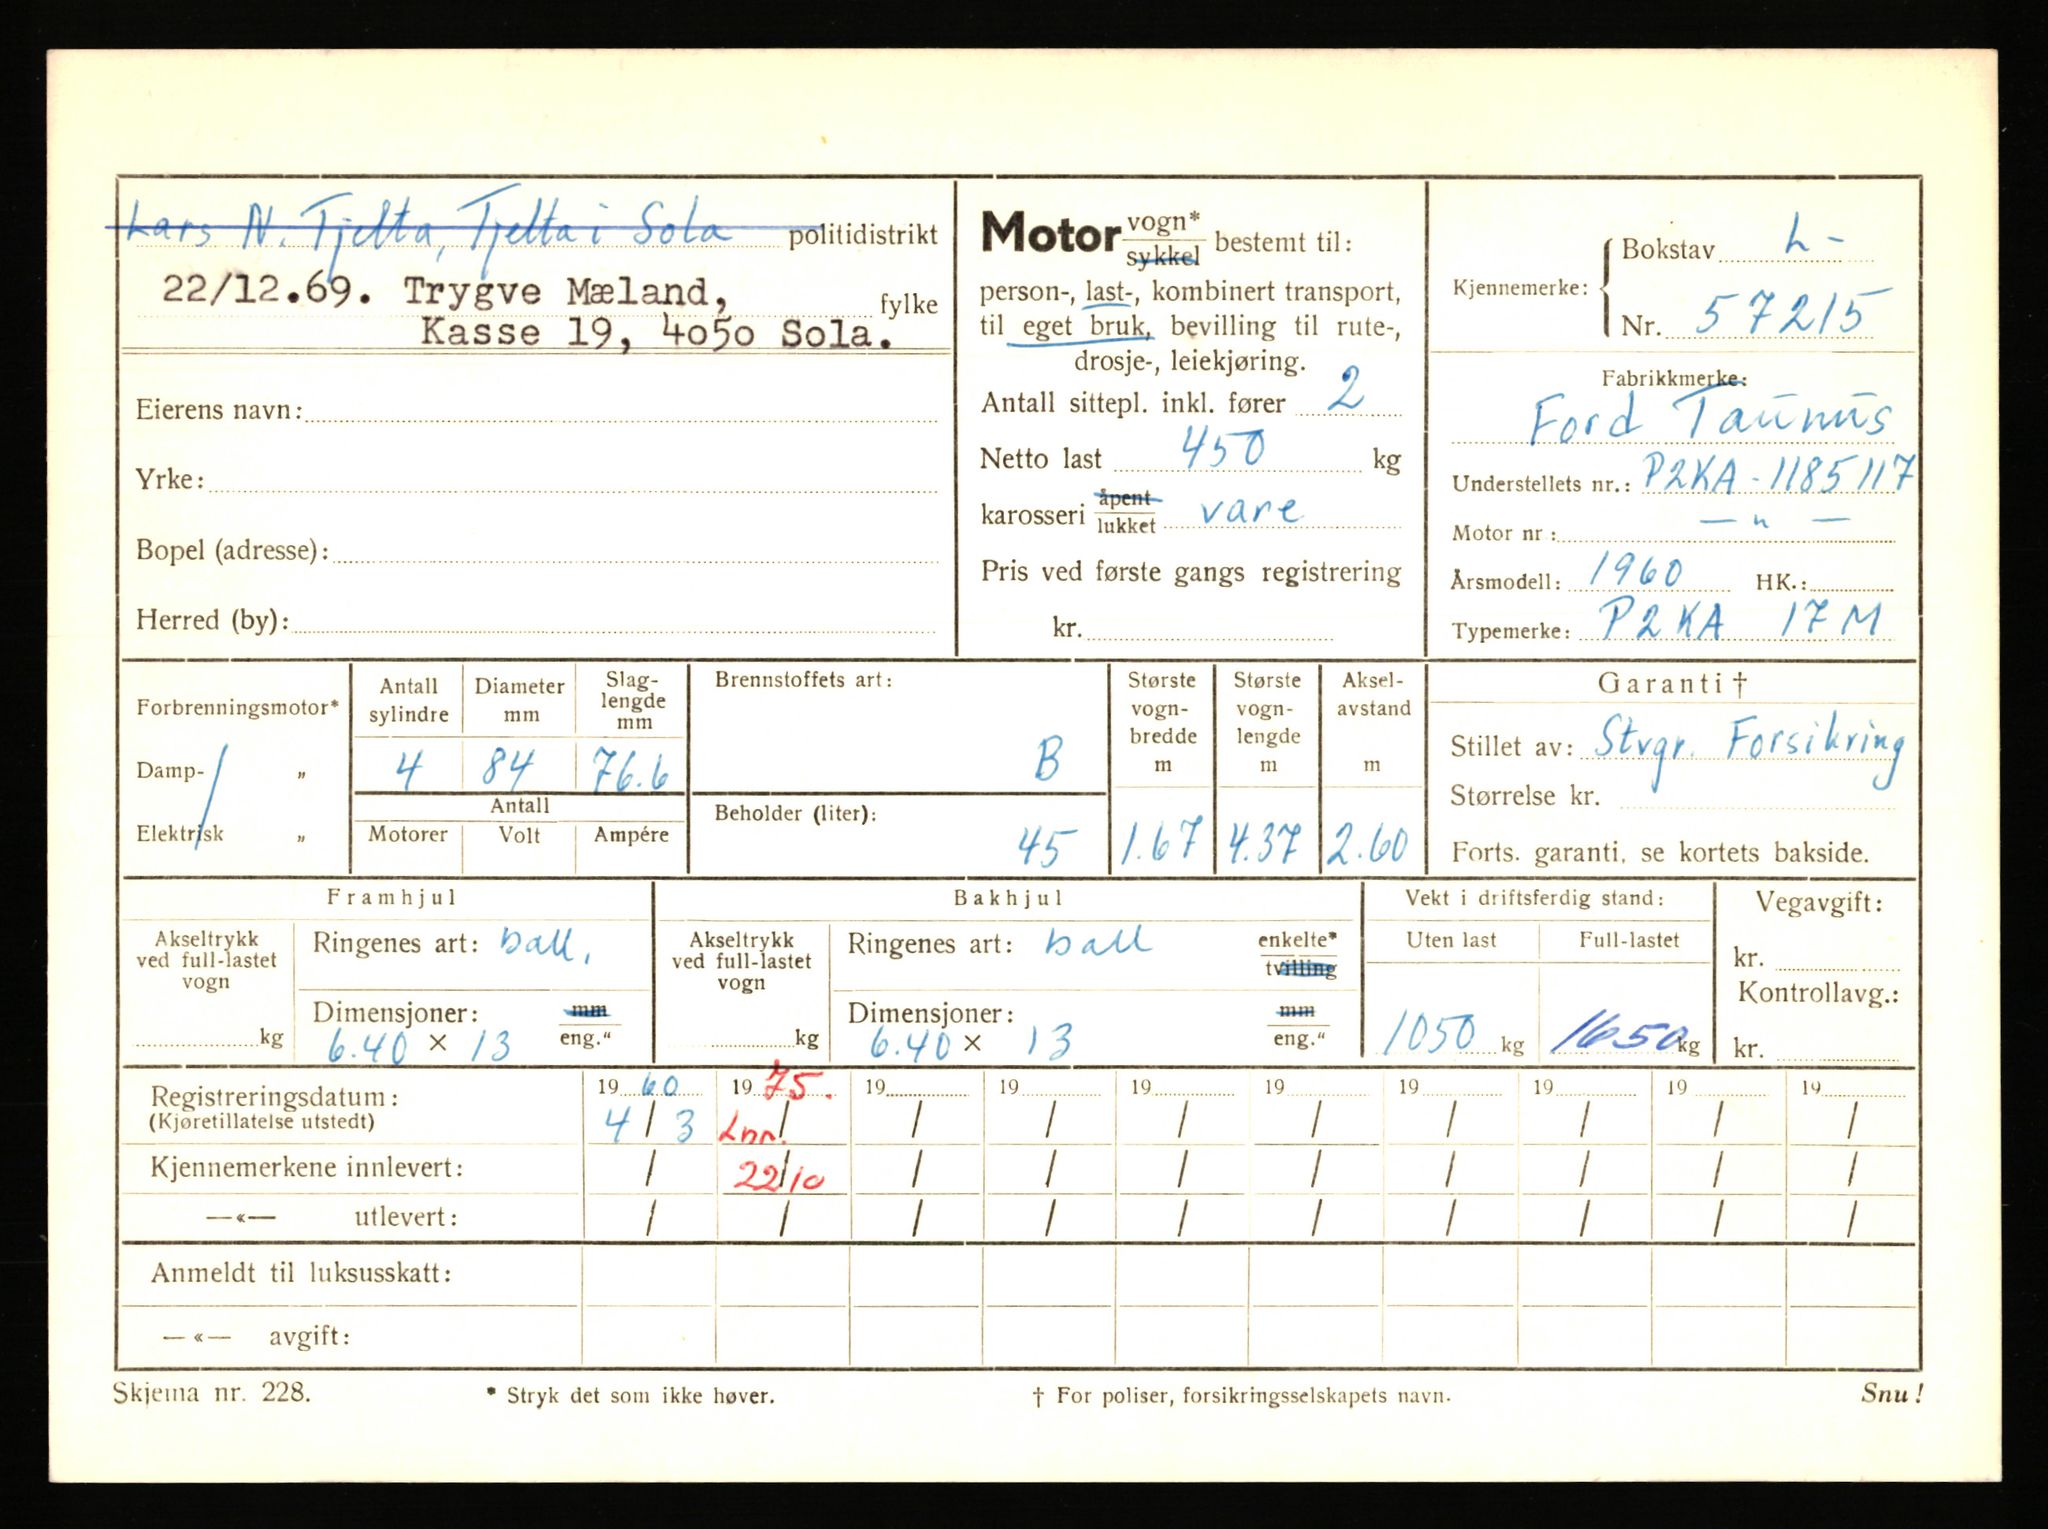 Lars N. Tjelta, Tjelta i Sola politidistrikt
22/12.69. Trygve Mæland, fylke
Kasse 19, 4050 Sola.
Eierens navn:
Yrke:
Bopel (adresse):
Herred (by):
Motor vogn* sykkel bestemt til:
person-, last-, kombinert transport,
til eget bruk, bevilling til rute-,
drosje-, leiekjøring.
Antall sittepl. inkl. fører 2
Netto last 450 kg
karosseri åpent lukket vare
Pris ved første gangs registrering
kr.
Kjennemerke: Bokstav L-
Nr. 57215
Fabrikkmerke:
Ford Taunus
Understellets nr.: P2KA-1185117
Motor nr.: — " —
Årsmodell: 1960 HK.:
Typemerke: P2KA 17M
Forbrenningsmotor*
Damp- „
Elektrisk „
Antall sylindre 4
Diameter mm 84
Slaglengde mm 76.6
Antall
Motorer Volt Ampére
Brennstoffets art: B
Beholder (liter): 45
Største vogn-bredde m 1.67
Største vogn-lengde m 4.37
Aksel-avstand m 2.60
Garanti †
Stillet av: Stvgr. Forsikring
Størrelse kr.
Forts. garanti, se kortets bakside.
Framhjul
Akseltrykk ved full-lastet vogn kg
Ringenes art: ball.
Dimensjoner: mm eng."
6.40 × 13
Bakhjul
Akseltrykk ved full-lastet vogn kg
Ringenes art: ball enkelte* tvilling
Dimensjoner: mm eng."
6.40 × 13
Vekt i driftsferdig stand:
Uten last Full-lastet
1050 kg 1650 kg
Vegavgift:
kr.
Kontrollavg.:
kr.
Registreringsdatum: 19 60 19 75. 19 19 19 19 19 19 19 19
(Kjøretillatelse utstedt) 4/3 Lnr. / / / / / / / / /
Kjennemerkene innlevert: / 22/10 / / / / / / / /
—«— utlevert: / / / / / / / / / /
Anmeldt til luksusskatt:
—«— avgift:
Skjema nr. 228. * Stryk det som ikke høver. † For poliser, forsikringsselskapets navn. Snu!